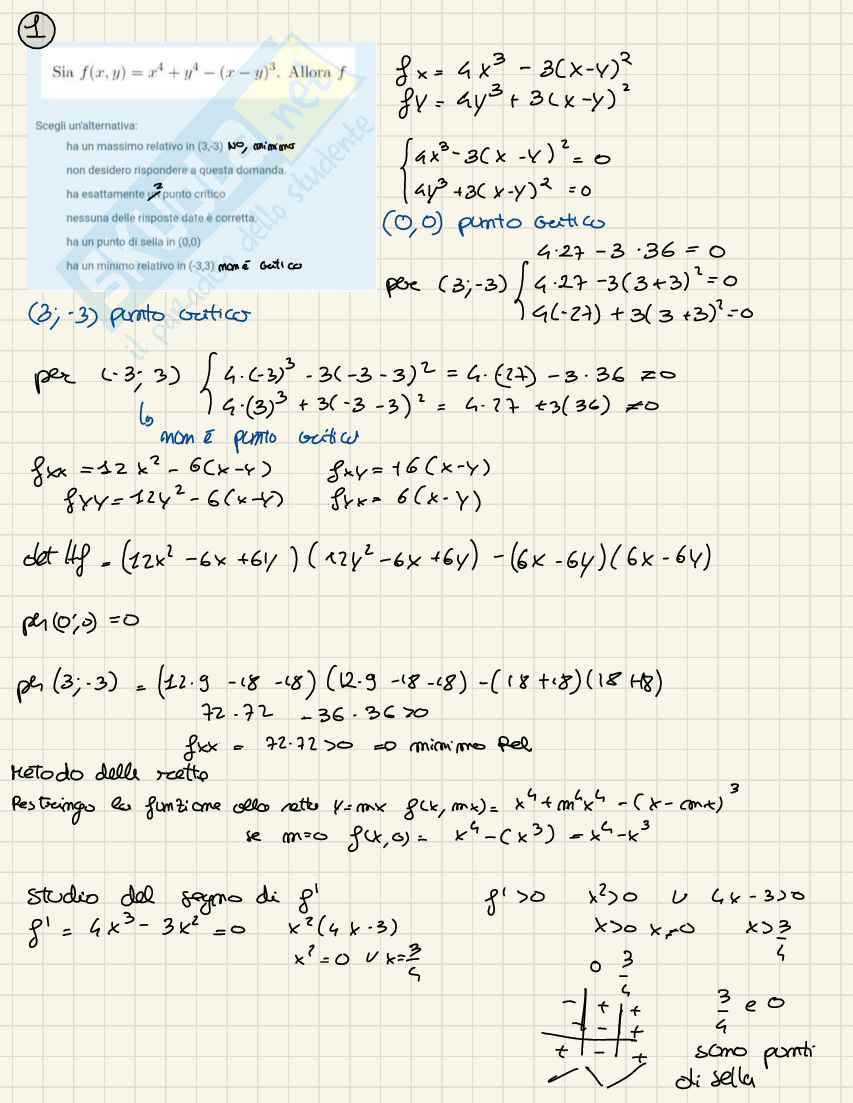 1
Sia f(x, y) = x⁴ + y⁴ − (x − y)³. Allora f
Scegli un'alternativa:
ha un massimo relativo in (3,-3) NO, minimo
non desidero rispondere a questa domanda.
ha esattamente 2 punto critico
nessuna delle risposte date è corretta.
ha un punto di sella in (0,0)
ha un minimo relativo in (-3,3) non è critico
fx = 4x³ - 3(x-y)²
fy = 4y³ + 3(x-y)²
4x³ - 3(x-y)² = 0
4y³ + 3(x-y)² = 0
(0,0) punto critico
4·27 - 3·36 = 0
per (3;-3) 4·27 - 3(3+3)² = 0
4(-27) + 3(3+3)² = 0
(3;-3) punto critico
per (-3; 3) 4·(-3)³ - 3(-3-3)² = 4·(-27) - 3·36 ≠ 0
4·(3)³ + 3(-3-3)² = 4·27 + 3(36) ≠ 0
↳ non è punto critico
fxx = 12x² - 6(x-y) fxy = +6(x-y)
fyy = 12y² - 6(x-y) fyx = 6(x-y)
det Hf = (12x² - 6x + 6y)(12y² - 6x + 6y) - (6x - 6y)(6x - 6y)
per (0;0) = 0
per (3;-3) = (12·9 -18 -18)(12·9 -18 -18) - (18+18)(18+18)
72·72 - 36·36 > 0
fxx = 72·72 > 0 => minimo Rel
Metodo delle rette
Restringo la funzione alla retta y=mx f(x, mx) = x⁴ + m⁴x⁴ - (x - mx)³
se m=0 f(x,0) = x⁴ - (x³) = x⁴ - x³
Studio del segno di f'
f' = 4x³ - 3x² = 0 x²(4x-3)
x² = 0 ∪ x = 3/4
f' > 0 x² > 0 ∪ 4x - 3 > 0
x > 0 x ≠ 0 x > 3/4
0 3/4
- + +
- - +
+ - +
3/4 e 0
sono punti
di sella
skuola.net
il paradiso dello studente